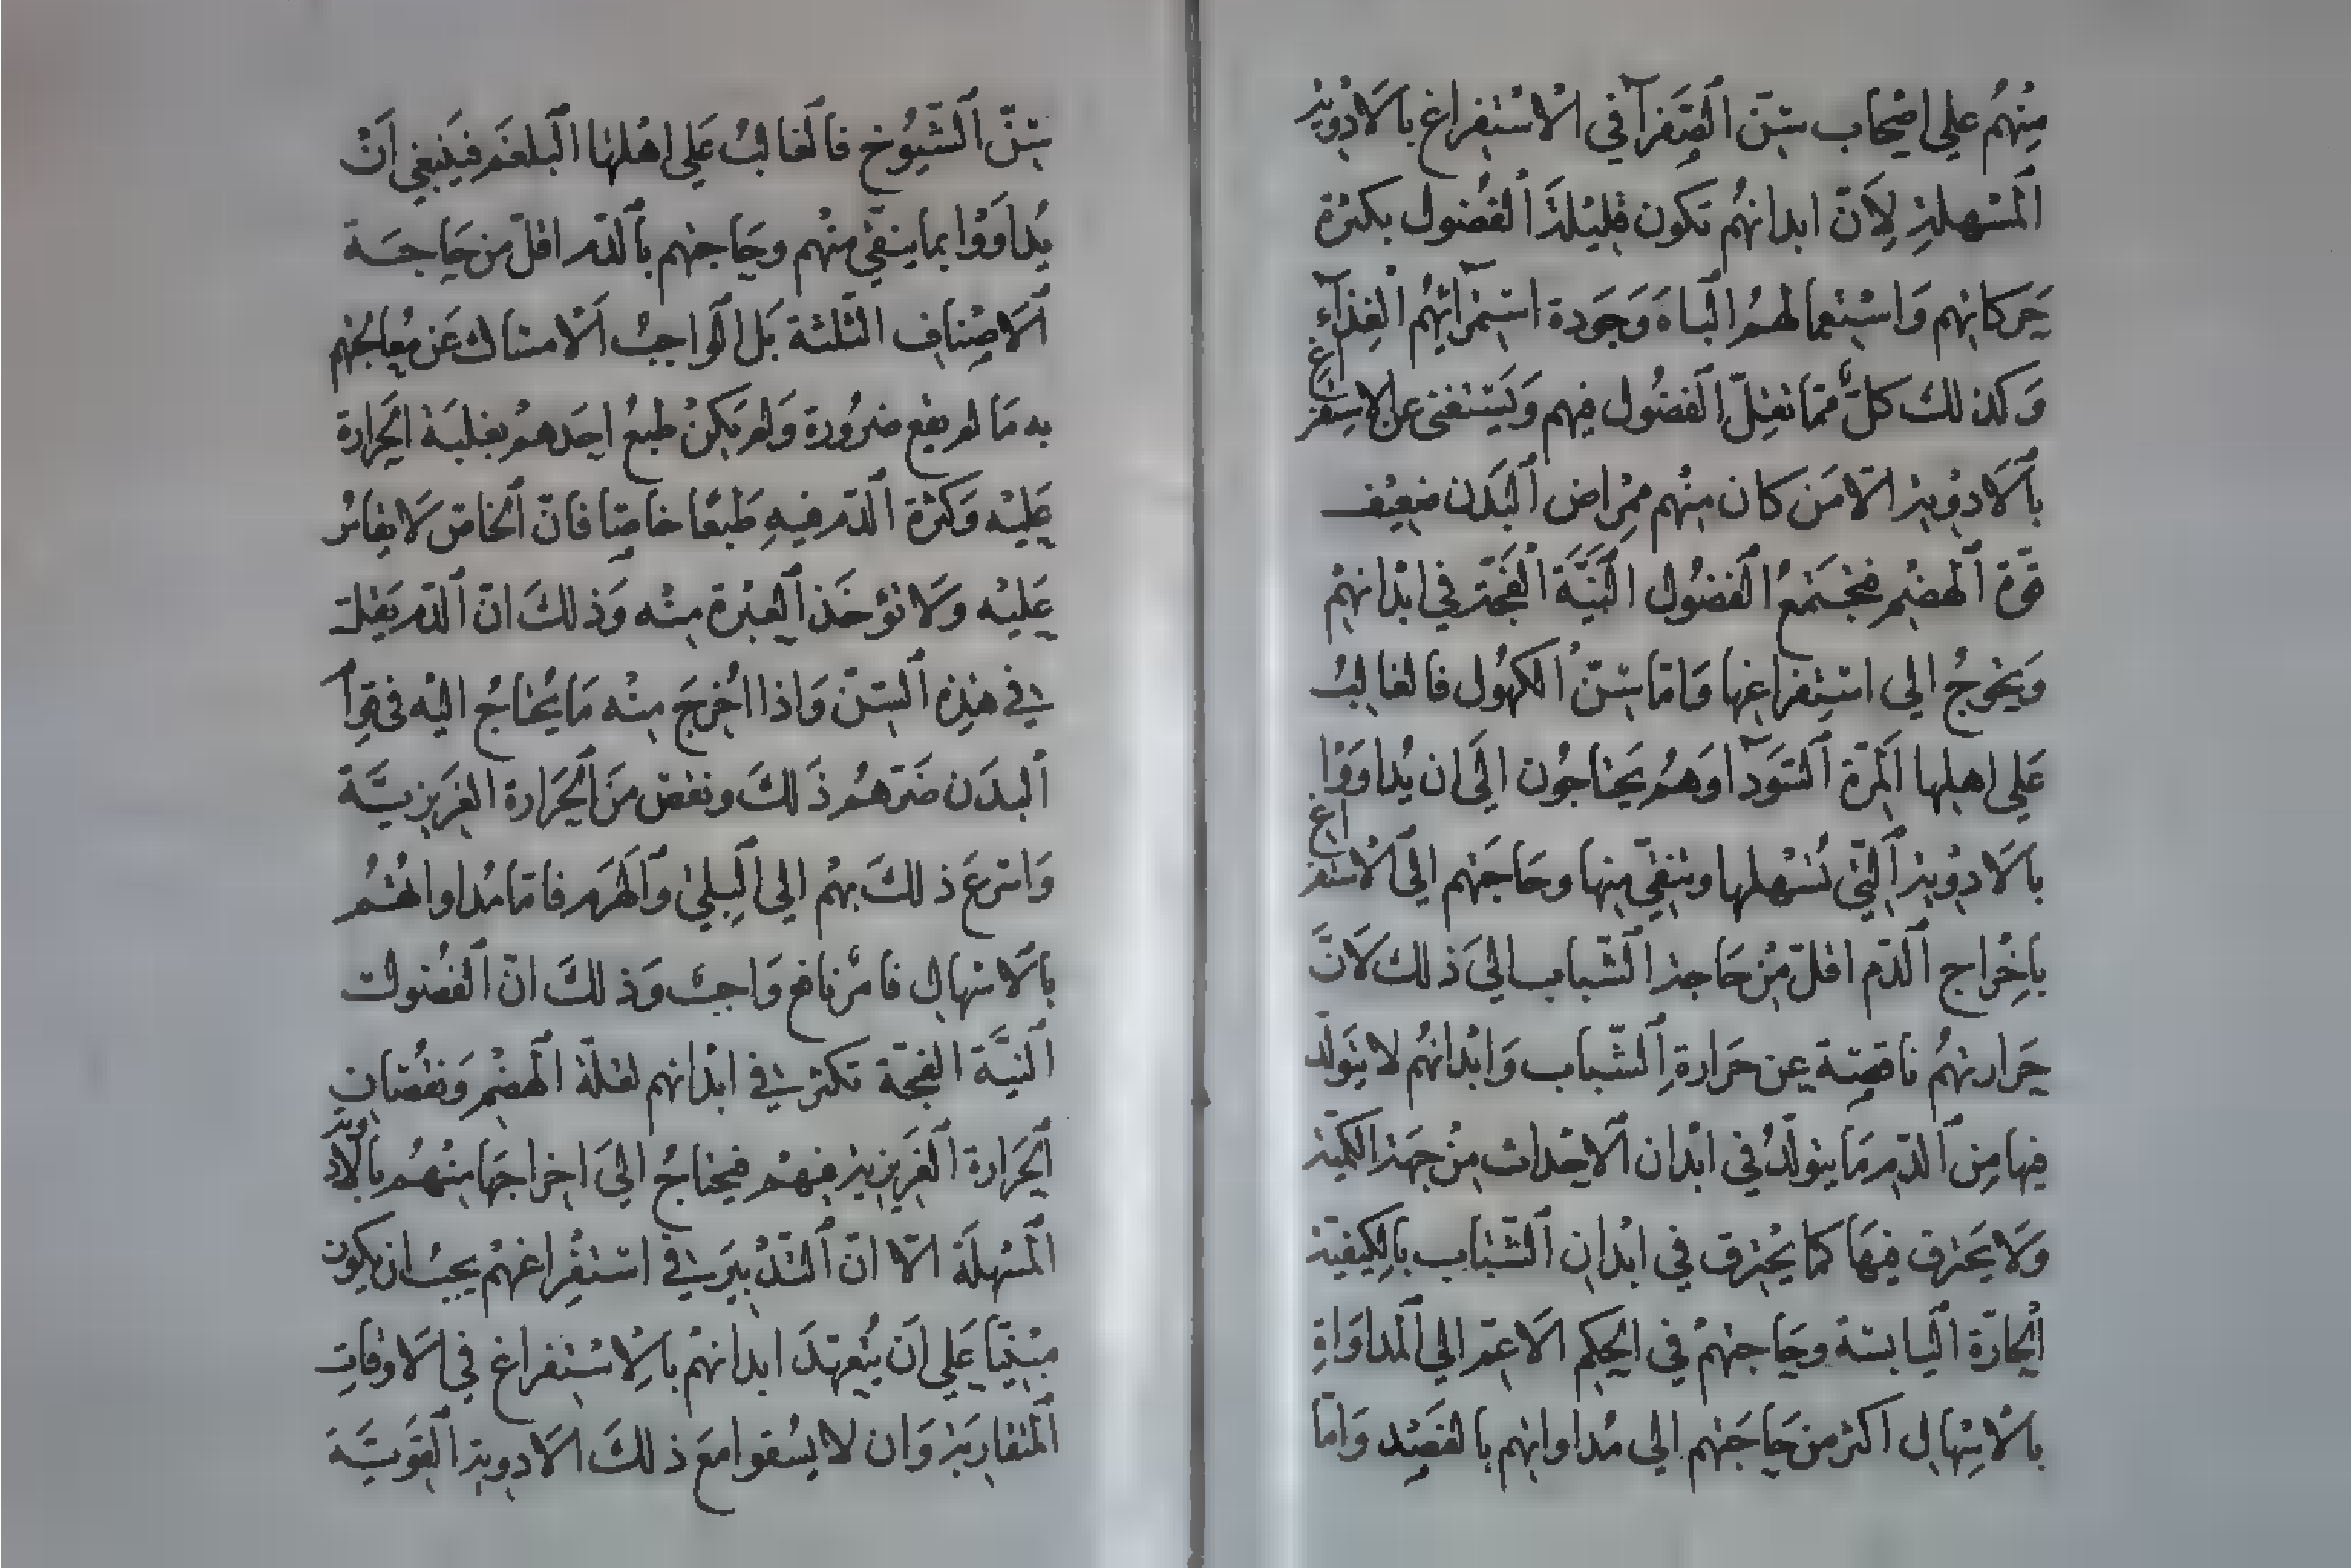 مِنْهُم علي اصْحاب سِنّ الصَّفرآ في الاسْتفراغ بالادْويَة
المُسْهلَةِ لِاَنّ ابدانهُم تكون قليْلَةَ الفُضُول بكثرة
حَركاتِهم وَاسْتِعمالهمُ البَاهَ وَجَودة استمرآئِهُم الغِذآء
وَكذلكَ كلُّ مّما تقِلّ الفضُول فِيهم وَيَسْتغنى عن الاستِفراغ
بالاَدوْيةِ الّا مَن كان مِنْهم مِمراض البَدَن ضعِيْف
قوّة الهضْم فتجْتَمعُ الفضُول النيَّة الفَجّة في ابْدانهِمْ
وَيَحُوجُ الي استِفراغها وَامّا سِنّ الكهُول فالغالبُ
عَلي اهلها المرّة السَّودآ وَهُم يَحتاجُون الَي ان يُداوَوْا
بالاَدوْيةِ الّتي تُسْهلها وتنقّي مِنها وحَاجَتهم الَي الاسْتفراغ
باِخْراج الدّم اقلّ مِنْ حَاجة الشّباب الي ذلكَ لاَنَّ
حَرارتهُم ناقصَة عن حَرارةِ الشّباب وَابْدانهُم لا يتَولّد
فيها مِن الدّم مَا يتولّدُ في ابْدان الاحْداث مِنْ جهَة الكميّة
وَلا يَحترق فيهَا كما يحْترق في ابْدان الشّباب بالكيفيّة
الحارّة اليابسَة وحَاجتهُمْ في الحكم الاعمّ الي المداوَاةِ
بالاسْهال اكثر من حَاجَتهم الي مُداواتهم بالفَصْد وَامّا
سِنّ الشّيُوخ فالغالبُ عَلي اهْلها البَلغَم فيَنبغي اَنْ
يُداوَوْا بما ينقّي مِنْهم وحَاجتهم بالدّم اقلّ من حَاجَة
الاَصْناف الثّلثة بَل الوَاجبُ الامساك عَن مُعالجتهم
به مَا لم يقع ضرُورة وَلم يَكنْ طبعُ احَدهمْ بغلبَة الحَرارة
عَليْه وَكثرة الدّم فيهِ طَبعًا خاصّا فانّ الخاصّ لَا يقاسُ
عَليْه وَلا تؤخَذ العِبْرة مِنْه وَذلكَ انّ الدّم يَقلّ
في هٰذِهِ السّنّ وَاذا اُخرجَ مِنْه مَا يُحتاجُ اليْه في قِرآ
البدَن ضَرّهُم ذَلكَ ونقصَ منَ الحَرارة الغَريزيَّة
وَاسْرعَ ذلكَ بهِمْ الي البِليٰ وَالهَرَم فامّا مُداواتهُم
بالاَسْهال فامْرٌ نافع وَاجبٌ وَذلكَ انّ الفُضول
النيَّة الفجّة تكثر في ابْدانهم لقلّة الهَضْم وَنقْصَان
الحَرارة الغَريزيّة فيهمْ فيحتاجُ الَي اخراجهَا مِنْهُم بالادوية
المُسْهلَة الّا انّ التّدْبيَر في اسْتفْراغهمْ يجبُ ان يكون
مبْنيّا عَلي اَن يُتعهّدَ ابدانهُمْ بالاِسْتفراغ في الاَوقات
المتقاربَة وَان لا يسْقوا معَ ذلكَ الاَدوية القَويَّة